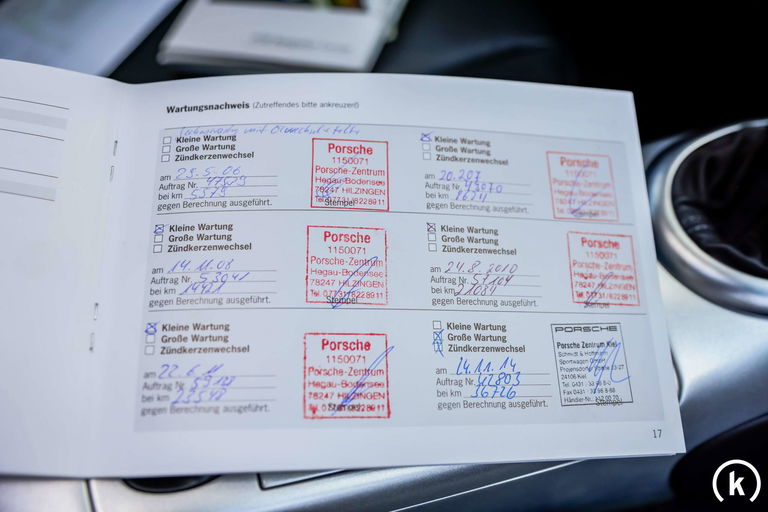 Wartungsnachweis (Zutreffendes bitte ankreuzen!)
Kleine Wartung
Große Wartung
Zündkerzenwechsel
am 23.5.06
Auftrag Nr.
bei km
gegen Berechnung ausgeführt.
Porsche
1150071
Porsche-Zentrum
Hegau-Bodensee
78247 HILZINGEN
Stempel
Kleine Wartung
Große Wartung
Zündkerzenwechsel
am 20.207
Auftrag Nr.
bei km
gegen Berechnung ausgeführt.
Porsche
1150071
Porsche-Zentrum
Hegau-Bodensee
78247 HILZINGEN
Stempel
Kleine Wartung
Große Wartung
Zündkerzenwechsel
am 14.11.08
Auftrag Nr. 53041
bei km 14421
gegen Berechnung ausgeführt.
Porsche
1150071
Porsche-Zentrum
Hegau-Bodensee
78247 HILZINGEN
Tel. 07731/8228911
Stempel
Kleine Wartung
Große Wartung
Zündkerzenwechsel
am 24.8.2010
Auftrag Nr. 57104
bei km 21080
gegen Berechnung ausgeführt.
Porsche
1150071
Porsche-Zentrum
Hegau-Bodensee
78247 HILZINGEN
Tel. 07731/8228911
Stempel
Kleine Wartung
Große Wartung
Zündkerzenwechsel
am 22.6.11
Auftrag Nr.
bei km 23548
gegen Berechnung ausgeführt.
Porsche
1150071
Porsche-Zentrum
Hegau-Bodensee
78247 HILZINGEN
Stempel
Kleine Wartung
Große Wartung
Zündkerzenwechsel
am 14.11.14
Auftrag Nr. 42803
bei km 36726
gegen Berechnung ausgeführt.
PORSCHE
Porsche Zentrum Kiel
Schmidt & Hoffmann
Sportwagen GmbH
24106 Kiel
Stempel
17
(k)